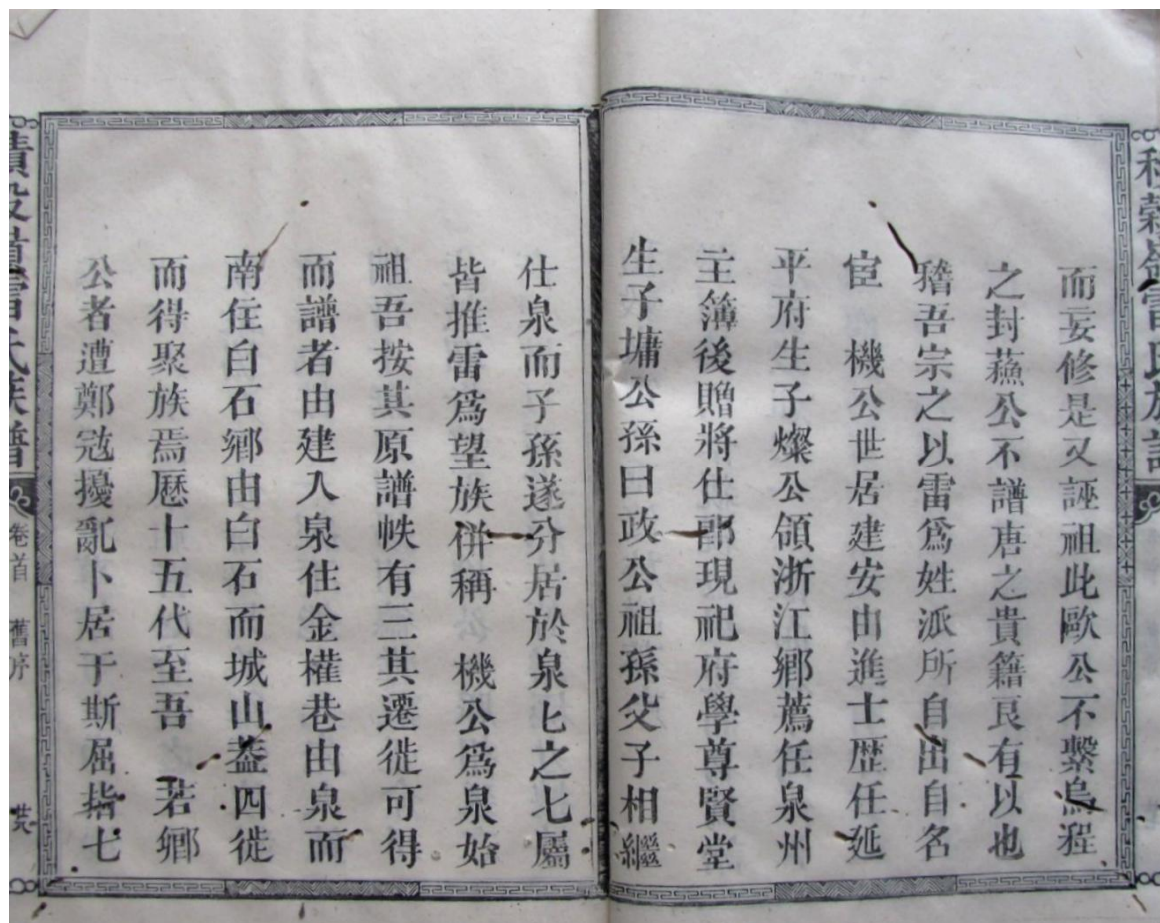 而妄修是又誣祖此歐公不繫烏程
之封蘓公不譜唐之貴籍良有以也
稽吾宗之以雷爲姓派所自出自名
宦　機公世居建安由進士歷任延
平府生子燦公領浙江鄉薦任泉州
主簿後贈將仕郎現祀府學尊賢堂
生子墉公孫曰政公祖孫父子相繼
仕泉而子孫遂分居於泉匕之七屬
皆推雷爲望族併稱　機公爲泉始
祖吾按其原譜帙有三其遷徙可得
而譜者由建入泉住金權巷由泉而
南住白石鄉由白石而城山葢四徙
而得聚族焉厯十五代至吾　若鄉
公者遭鄭宼擾亂卜居于斯屈指七
雷氏族譜
卷首
舊序